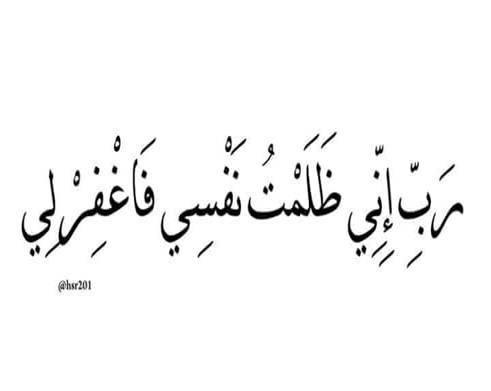 رَبِّ إِنِّي ظَلَمْتُ نَفْسِي فَاغْفِرْ لِي
@hsr201